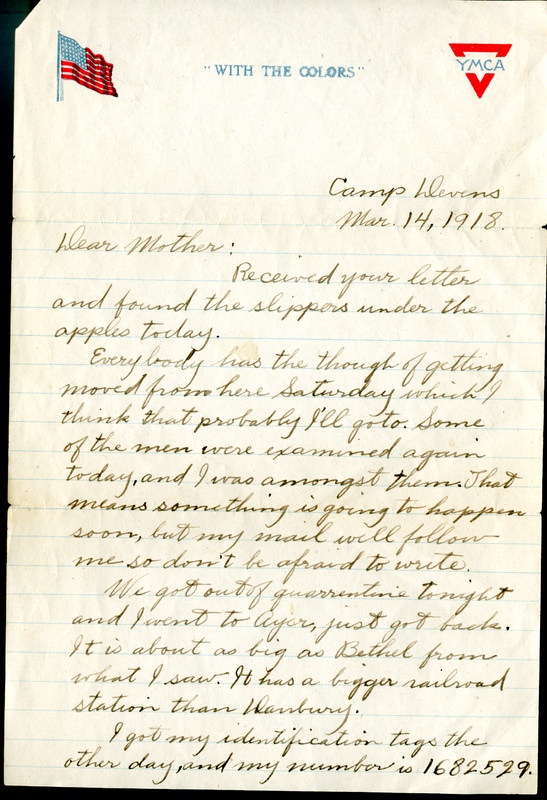 "WITH THE COLORS"
YMCA
Camp Devens
Mar. 14, 1918.
Dear Mother:
Received your letter
and found the slippers under the
apples today.
Everybody has the though of getting
moved from here Saturday which I
think that probably I'll go to. Some
of the men were examined again
today, and I was amongst them. That
means something is going to happen
soon, but my mail will follow
me so don't be afraid to write.
We got out of quarrentine tonight
and I went to Ayer, just got back.
It is about as big as Bethel from
what I saw. It has a bigger railroad
station than Danbury.
I got my identification tags the
other day, and my number is 1682529.